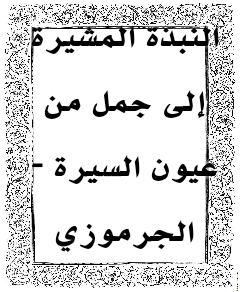 النبذة المشيرة
إلى جمل من
عيون السيرة -
الجرموزي